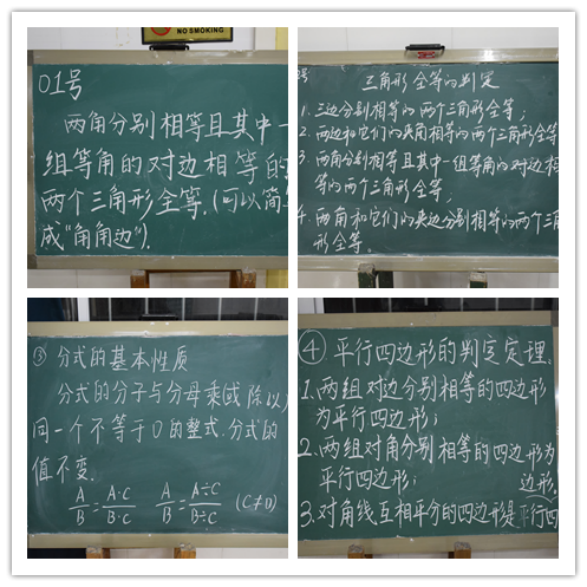 NO SMOKING
01号
两角分别相等且其中一
组等角的对边相等的
两个三角形全等.(可以简
成"角角边").
号
三角形全等的判定
1. 三边分别相等的两个三角形全等;
2. 两边和它们的夹角相等的两个三角形全等
3. 两角分别相等且其中一组等角的对边相
等的两个三角形全等;
4. 两角和它们的夹边分别相等的两个三角
形全等。
③ 分式的基本性质
分式的分子与分母乘(或除以)
同一个不等于0的整式.分式的
值不变.
A/B=A·C/B·C A/B=A÷C/B÷C (C≠0)
④.平行四边形的判定定理.
1.两组对边分别相等的四边形
为平行四边形;
2.两组对角分别相等的四边形为
平行四边形;
边形.
3.对角线互相平分的四边形是平行四